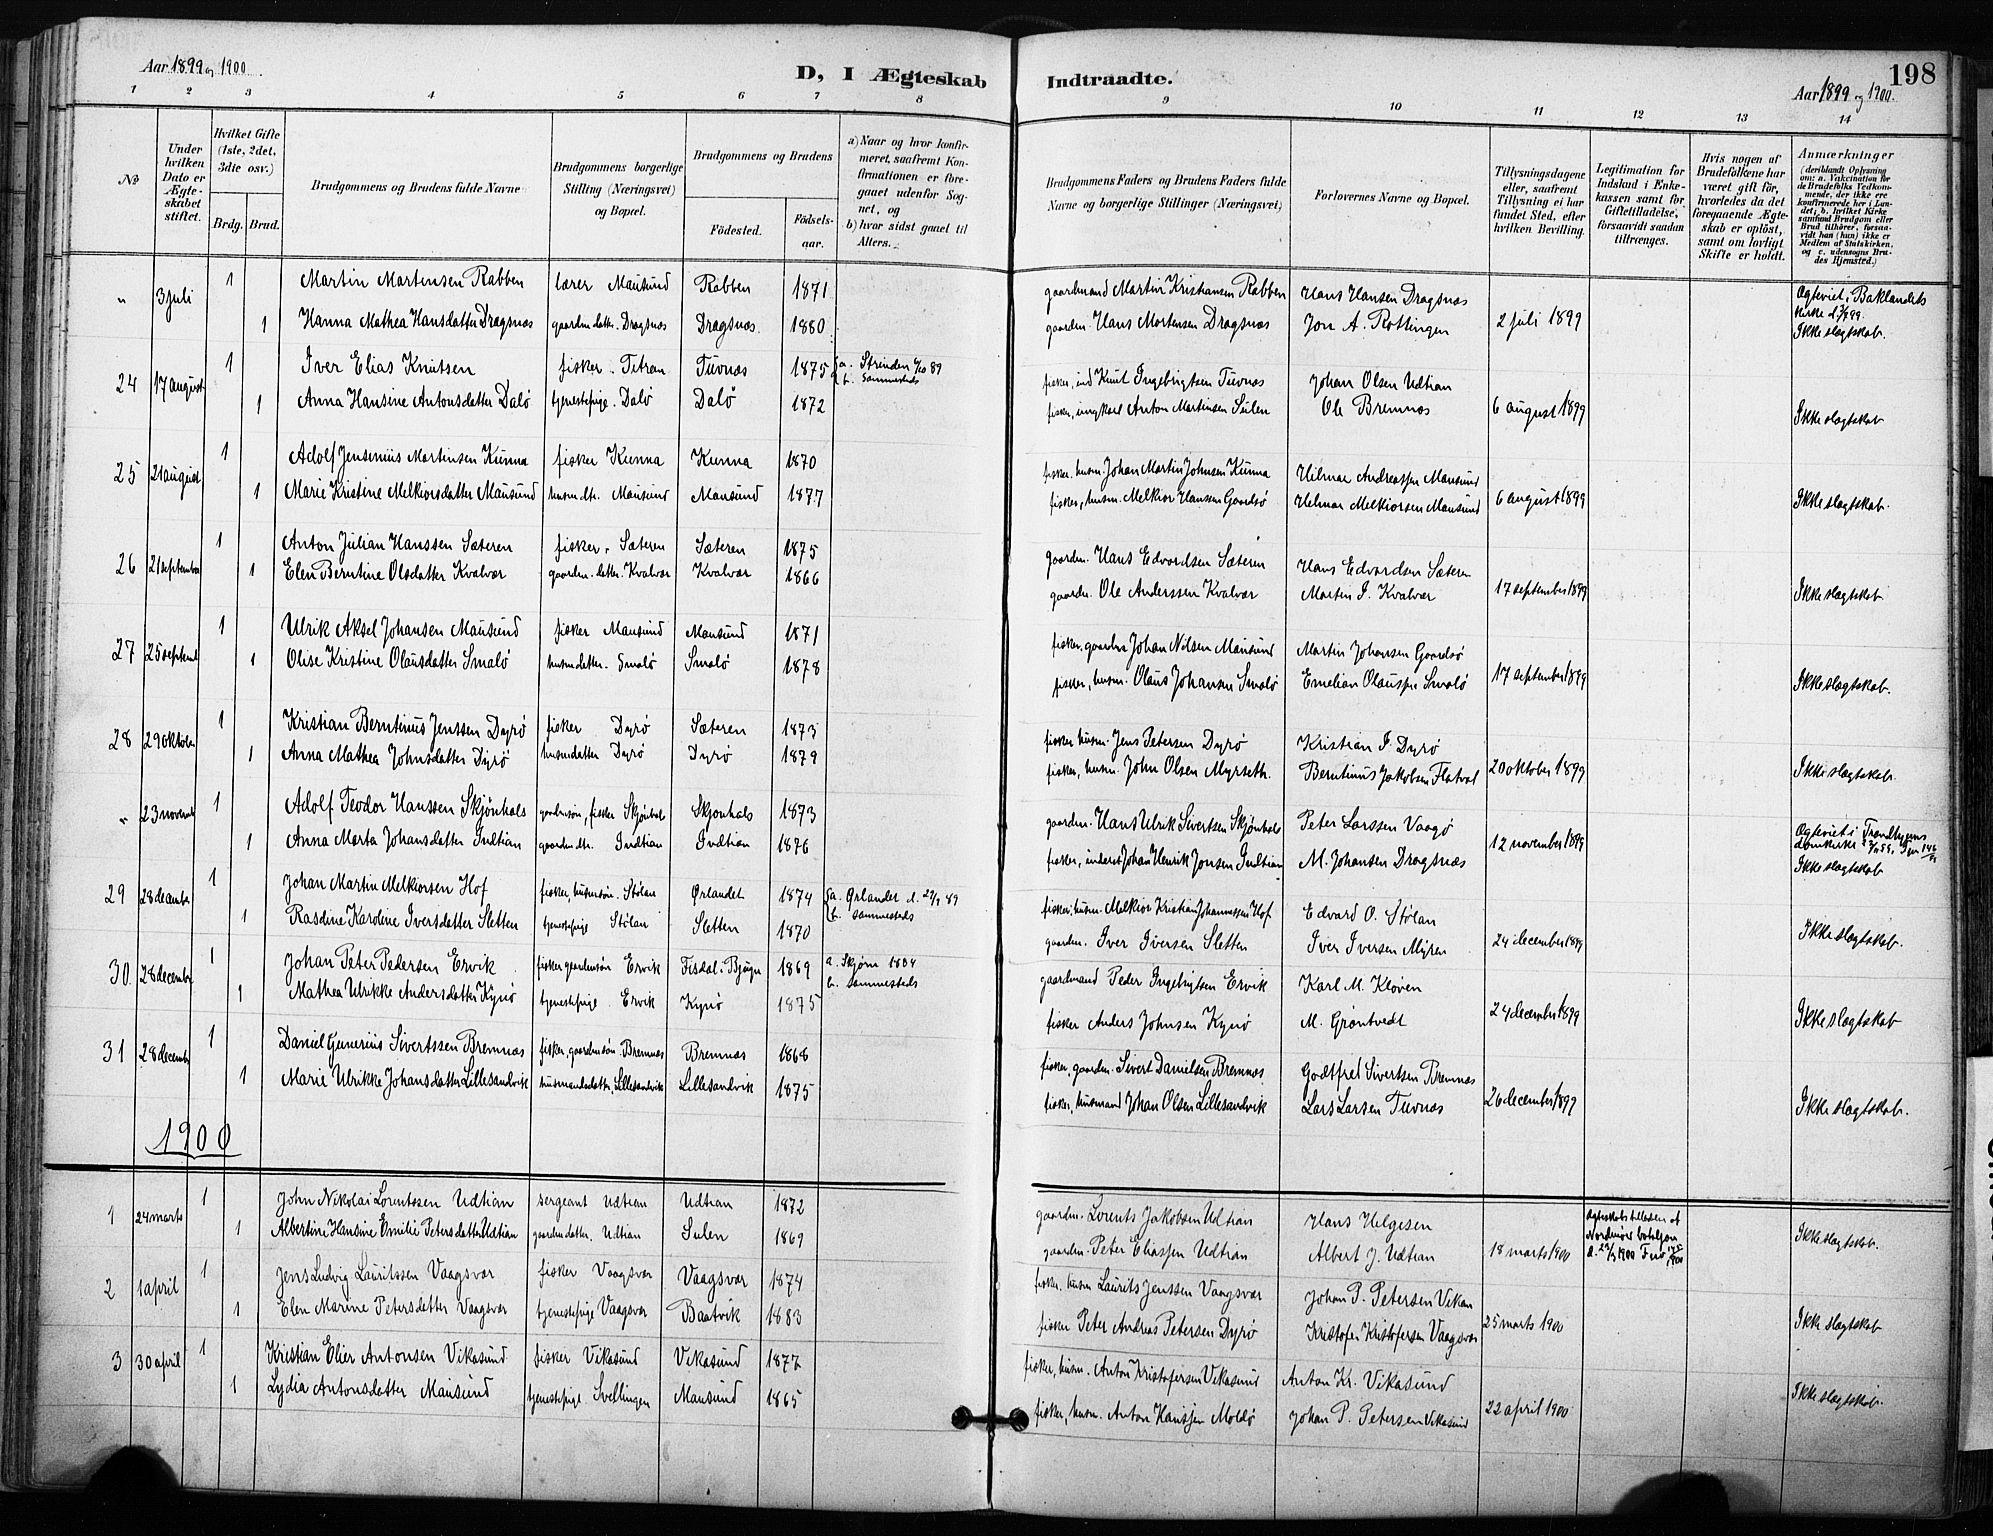 Aar 1899 og 1900.
D, I Ægteskab Indtraadte.
198
Aar 1899 og 1900.
1 2 3 4 5 6 7 8 9 10 11 12 13 14
No
Under hvilken Dato er Ægteskabet stiftet.
Hvilket Gifte (1ste, 2det, 3die osv.)
Brdg. Brud.
Brudgommens og Brudens fulde Navne
Brudgommens borgerlige Stilling (Næringsvei) og Bopæl.
Brudgommens og Brudens
Födested.
Födselsaar.
a) Naar og hvor konfirmeret, saafremt Konfirmationen er foregaaet udenfor Sognet, og
b) hvor sidst gaaet til Alters.
Brudgommens Faders og Brudens Faders fulde Navne og borgerlige Stillinger (Næringsvei)
Forlovernes Navne og Bopæl.
Tillysningsdagene eller, saafremt Tillysning ei har fundet Sted, efter hvilken Bevilling.
Legitimation for Indskud i Enkekassen samt for Giftetilladelse, forsaavidt saadan tiltrænges.
Hvis nogen af Brudefolkene har været gift för, hvorledes da det foregaaende Ægteskab er oplöst, samt om lovligt Skifte er holdt.
Anmærkninger (deriblandt Oplysning om: a. Vakcination for de Brudefolks Vedkommende, der ikke ere konfirmerede her i Landet; b. hvilket Kirkesamfund Brudgom eller Brud tilhörer, forsaavidt han (hun) ikke er Medlem af Statskirken, og c. udensogns Brudes Hjemsted.)
" 3 juli 1 Martin Martensen Rabben lærer Mausund Rabben 1871 gaardmand Martin Kristiansen Rabben Hans Hansen Dragsnæs Ægteviet i Baklandets kirke
1 Hanna Mathea Hansdatter Dragsnæs gaardm datter. Dragsnæs Dragsnæs. 1880 gaardm. Hans Mortensen Dragsnæs Jon A. Rottingen 2 juli 1899 Ikke slægtskab.
24 17 august 1 Iver Elias Knutsen fisker. Titran Tuvnæs 1875 a. Strinden 6/10 89 b. Sammesteds fisker, ind Knut Ingebrigtsen Tuvnæs Johan Olsen Udtian
1 Anna Hansine Antonsdatter Dalö tjenestepige. Dalö Dalö 1872 fisker, ungkarl Anton Martinsen Sulen Ole Bremnæs 6 august 1899 Ikke slægtskab
25 21 august 1 Adolf Jensenius Martinsen Kunna fisker Kunna Kunna 1870 fisker, husm. Johan Martin Johnsen Kunna Hilmar Andreassen Mausund
1 Marie Kristine Melkiorsdatter Mausund husm dtr. Mausund Mausund 1877 fisker, husm. Melkior Hansen Gaardsö Helmar Melkiorsen Mausund 6 august 1899 Ikke slægtskab.
26 21 september 1 Anton Julian Hanssen Sæteren fisker, Sæteren Sæteren 1875 gaardm. Hans Edvardsen Sæteren Hans Edvardsen Sæteren
1 Elen Berntine Olsdatter Kvalvær gaardm. datter. Kvalvær Kvalvær 1866 gaardm. Ole Anderssen Kvalvær Martin J. Kvalvær 17 september 1899 Ikke slægtskab
27 25 septemb 1 Ulrik Aksel Johansen Mausund fisker Mausund Mausund 1871 fisker, gaardm Johan Nilsen Mausund Martin Johansen Gaardsö
1 Olise Kristine Olausdatter Smalö husm datter. Smalö Smalö 1878 fisker, husm. Olaus Johansen Smalö Emelian Olaussen Smalö 17 september 1899 Ikke slægtskab.
28 29 oktober 1 Kristian Berntinus Jenssen Dyrö fisker Dyrö Sæteren 1873 fisker husm. Jens Petersen Dyrö Kristian J. Dyrö
1 Anna Mathea Johnsdatter Dyrö husm datter Dyrö Dyrö 1879 fisker, husm. John Olsen Myrseth. Berntinus Jakobsen Flatval 20 oktober 1899 Ikke slægtskab.
" 23 novemb 1 Adolf Teodor Hanssen Skjönhals gaardmsön, fisker Skjönhals Skjönhals 1873 gaardm. Hans Ulrik Sivertsen Skjönhals Peter Larssen Vaagö Ægteviet i Trondhjems domkirke
1 Anna Marta Johansdatter Indtian gaardm dtr. Indtian Indtian 1876 fisker, inderst Johan Henrik Jonsen Indtian M. Johansen Dragsnæs 12 november 1899 Ikke slægtskab
29 28 decembr 1 Johan Martin Melkiorsen Hof fisker, husmsön. Stölan Ørlandet 1874 a. Ørlandet d. 29/9 89 b. sammesteds fisker, husm. Melkior Kristian Johannessen Hof Edvard O. Stölan
1 Rasdine Karoline Iversdatter Sletten tjenestepige Stölan Sletten 1870 gaardm. Iver Iversen Sletten Iver Iversen Myren 24 december 1899 Ikke slægtskab.
30 28 decembr 1 Johan Peter Pedersen Ervik fisker gaardmsön Ervik Fisdal i Bjugn 1869 a. Skjörn 1884 b. sammesteds gaardmand Peder Ingebrigtsen Ervik Karl M. Kloven
1 Mathea Ulrikke Andersdatter Kyrö tjenestepige. Ervik Kyrö 1875 fisker Anders Johnsen Kyrö M. Gröntvedt 24 december 1899 Ikke slægtskab
31 28 decembr 1 Daniel Gunerius Sivertssen Bremnæs fisker, gaardmsön. Bremnæs Bremnæs 1868 fisker, gaardm. Sivert Danielsen Bremnæs Godtfred Sivertsen Bremnæs
1 Marie Ulrikke Johansdatter Lillesandvik husmandsdatter, Lillesandvik Lillesandvik 1875 fisker, husmand Johan Olsen Lillesandvik Lars Larsen Tuvnæs 26 december 1899 Ikke slægtskab.
1900
1 24 marts 1 John Nikolai Lorentssen Udtian sergeant Udtian Udtian 1872 gaardm. Lorents Jakobsen Udtian Hans Helgesen
1 Albertine Hansine Emilie Petersdatter Udtian gaardm datter. Udtian Sulen 1869 gaardm. Peter Eliassen Udtian Albert J. Udtian 18 marts 1900 Ikke slægtskab.
2 1 april 1 Jens Ludvig Lauritssen Vaagsvær fisker Vaagsvær Vaagsvær 1874 fisker, husm Laurits Jenssen Vaagsvær Johan P. Petersen Vikan
1 Elen Marine Petersdatter Vaagsvær tjenestepige Vaagsvær Baatvik 1883 fisker Peter Andreas Petersen Dyrö Kristofer Kristofersen Vaagsvær 25 marts 1900 Ikke slægtskab
3 30 april 1 Kristian Elier Antonsen Vikasund fisker Vikasund Vikasund 1877 fisker, husm. Anton Kristofersen Vikasund Anton Kr. Vikasund
1 Lydia Antonsdatter Mausund tjenestepige Svellingen Mausund 1865 fisker, husm. Anton Hanssen Moldö Johan P. Petersen Vikasund 22 april 1900 Ikke slægtskab.